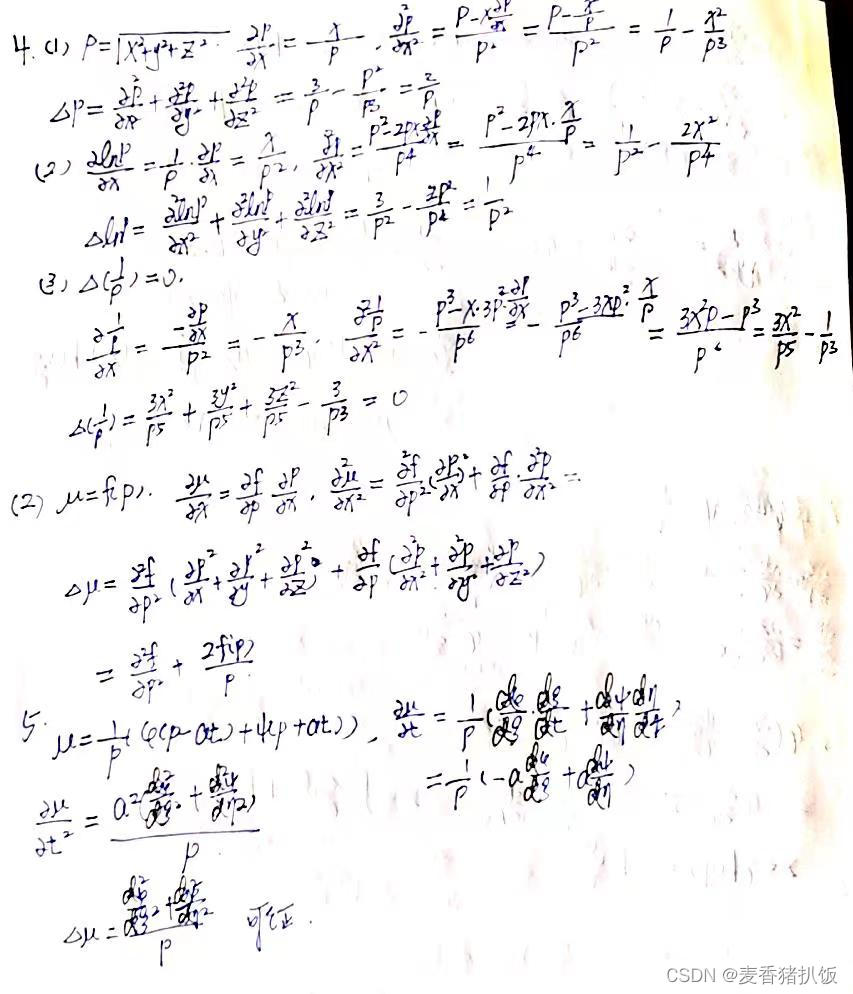 4. (1) P=√(x²+y²+z²) ∂P/∂x = x/P , ∂²P/∂x² = (P-x ∂P/∂x)/P² = (P-x/P)/P² = 1/P - x²/P³
ΔP = ∂²P/∂x + ∂²P/∂y² + ∂²P/∂z² = 3/P - P²/P³ = 2/P
(2) ∂lnP/∂x = 1/P · ∂P/∂x = x/P² , = (P²-2Px ∂P/∂x)/P⁴ = (P²-2Px·x/P)/P⁴ = 1/P² - 2x²/P⁴
ΔlnP = ∂²lnP/∂x² + ∂²lnP/∂y² + ∂²lnP/∂z² = 3/P² - 2P²/P⁴ = 1/P²
(3) Δ(1/P)=0.
∂(1/P)/∂x = (-∂P/∂x)/P² = -x/P³ . ∂²(1/P)/∂x² = -(P³-x·3P² ∂P/∂x)/P⁶ = -(P³-3xP²·x/P)/P⁶ = (3x²P-P³)/P⁶ = 3x²/P5 - 1/P3
Δ(1/P) = 3x²/P5 + 3y²/P5 + 3z²/P5 - 3/P3 = 0
(2) μ=f(P). ∂μ/∂x = ∂f/∂P ∂P/∂x , ∂²μ/∂x² = ∂²f/∂P² (∂P/∂x)² + ∂f/∂P · ∂²P/∂x² =
Δμ = ∂²f/∂P² (∂P²/∂x + ∂P²/∂y + ∂P²/∂z) + ∂f/∂P (∂²P/∂x² + ∂²P/∂y² + ∂²P/∂z²)
= ∂²f/∂P² + 2f(P)/P
5. μ = 1/P (φ(P-at)+ψ(P+at)) , ∂μ/∂t = 1/P (dφ/dξ · dξ/dt + dψ/dη dη/dt)
= 1/P (-a dφ/dξ + a dψ/dη)
∂μ/∂t² = a²(d²φ/dξ² + d²ψ/dη²)/P
Δμ = (d²φ/dξ² + d²ψ/dη²)/P 可证.
CSDN @麦香猪扒饭